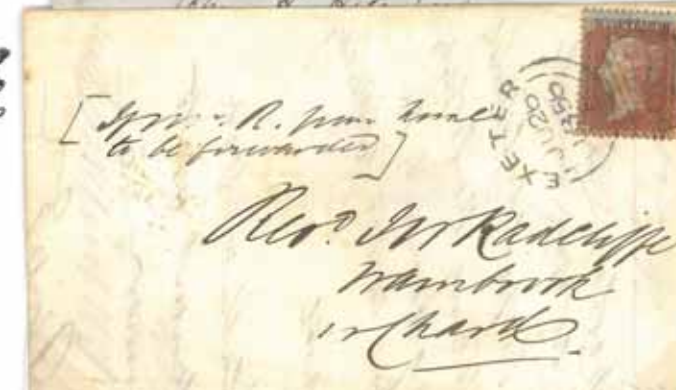 [If Mr. R. from home
to be forwarded]
EXETER
JU 20
1850
Revd. Mr Radcliffe
Wambrook
nr Chard